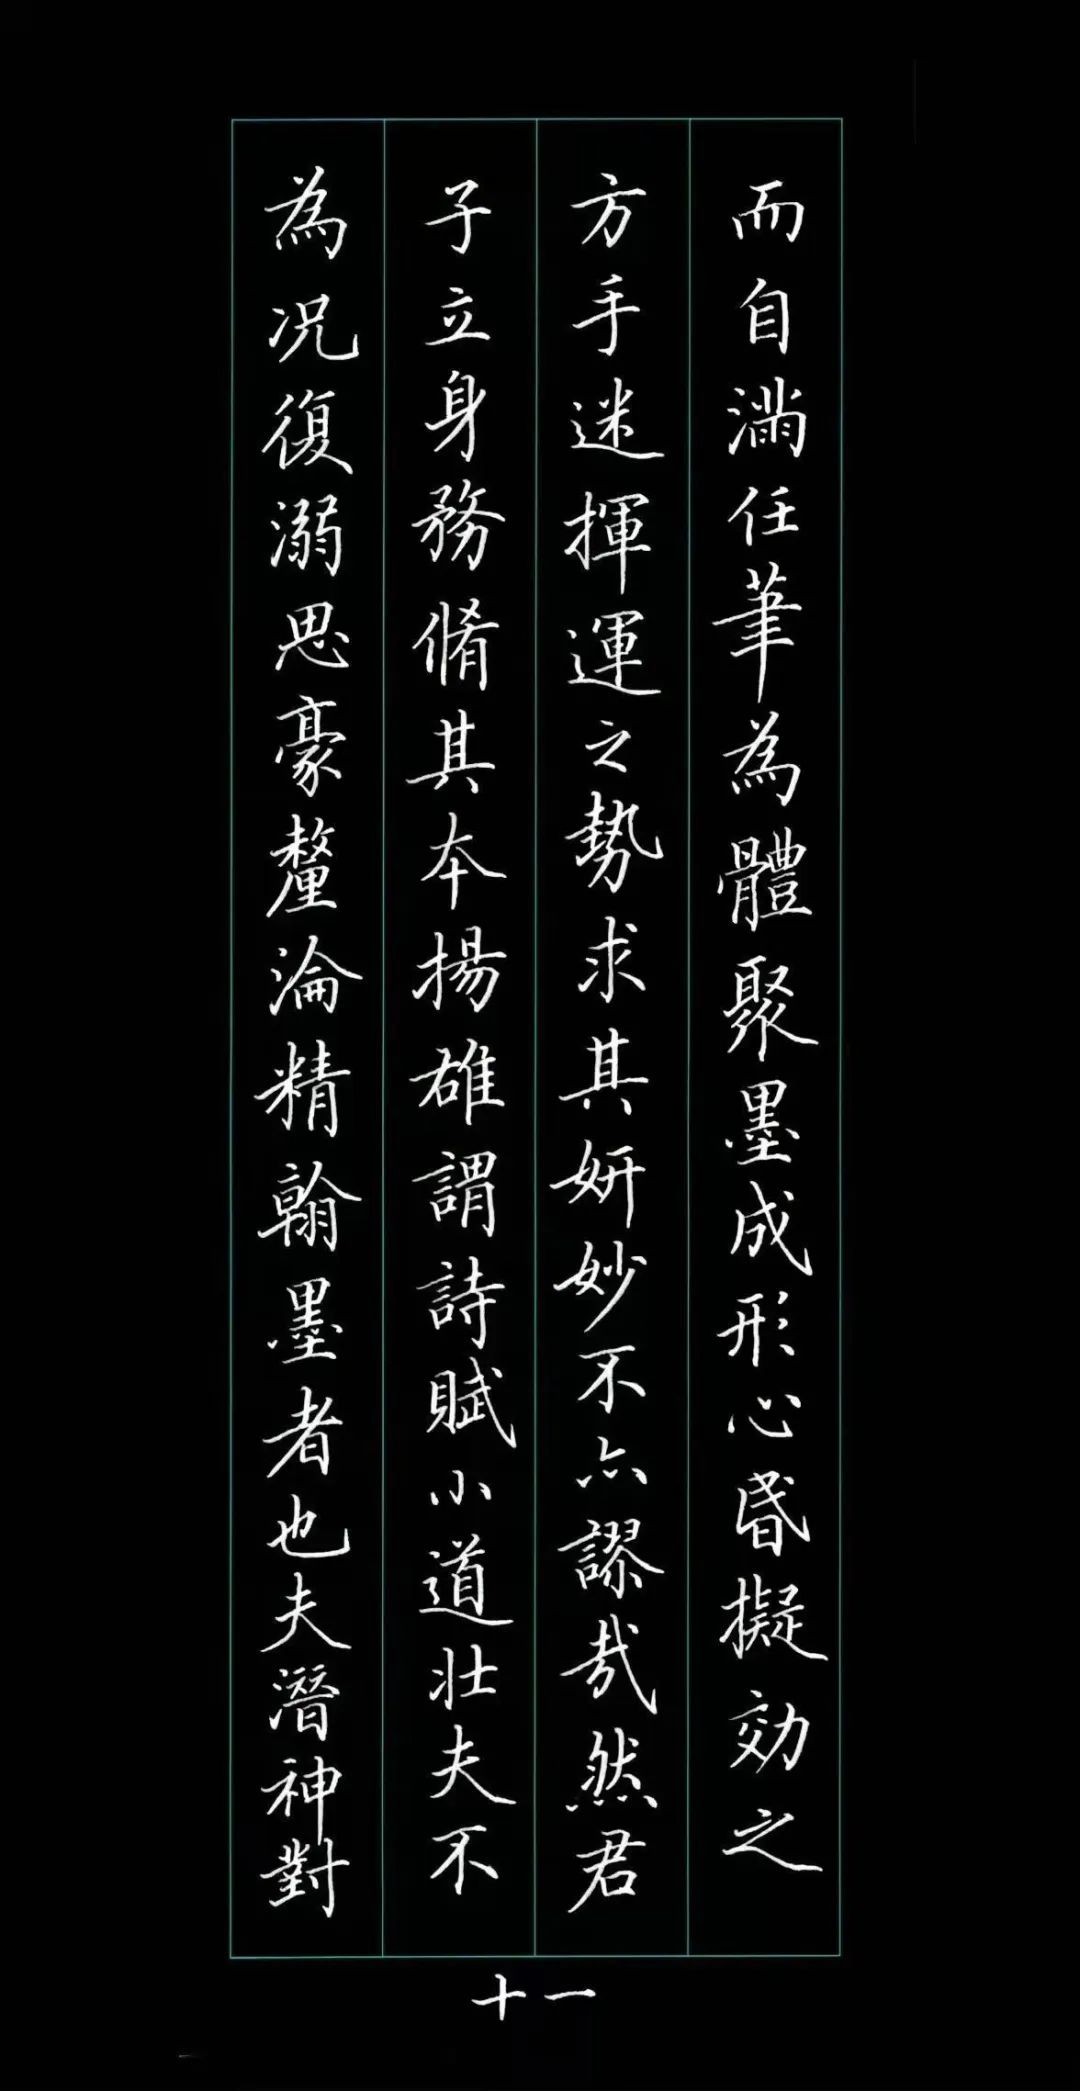 而自滿任筆為體聚墨成形心昬擬効之
方手迷揮運之勢求其妍妙不亦謬㢤然君
子立身務脩其本揚雄謂詩賦小道壯夫不
為況復溺思豪釐淪精翰墨者也夫潛神對
十一